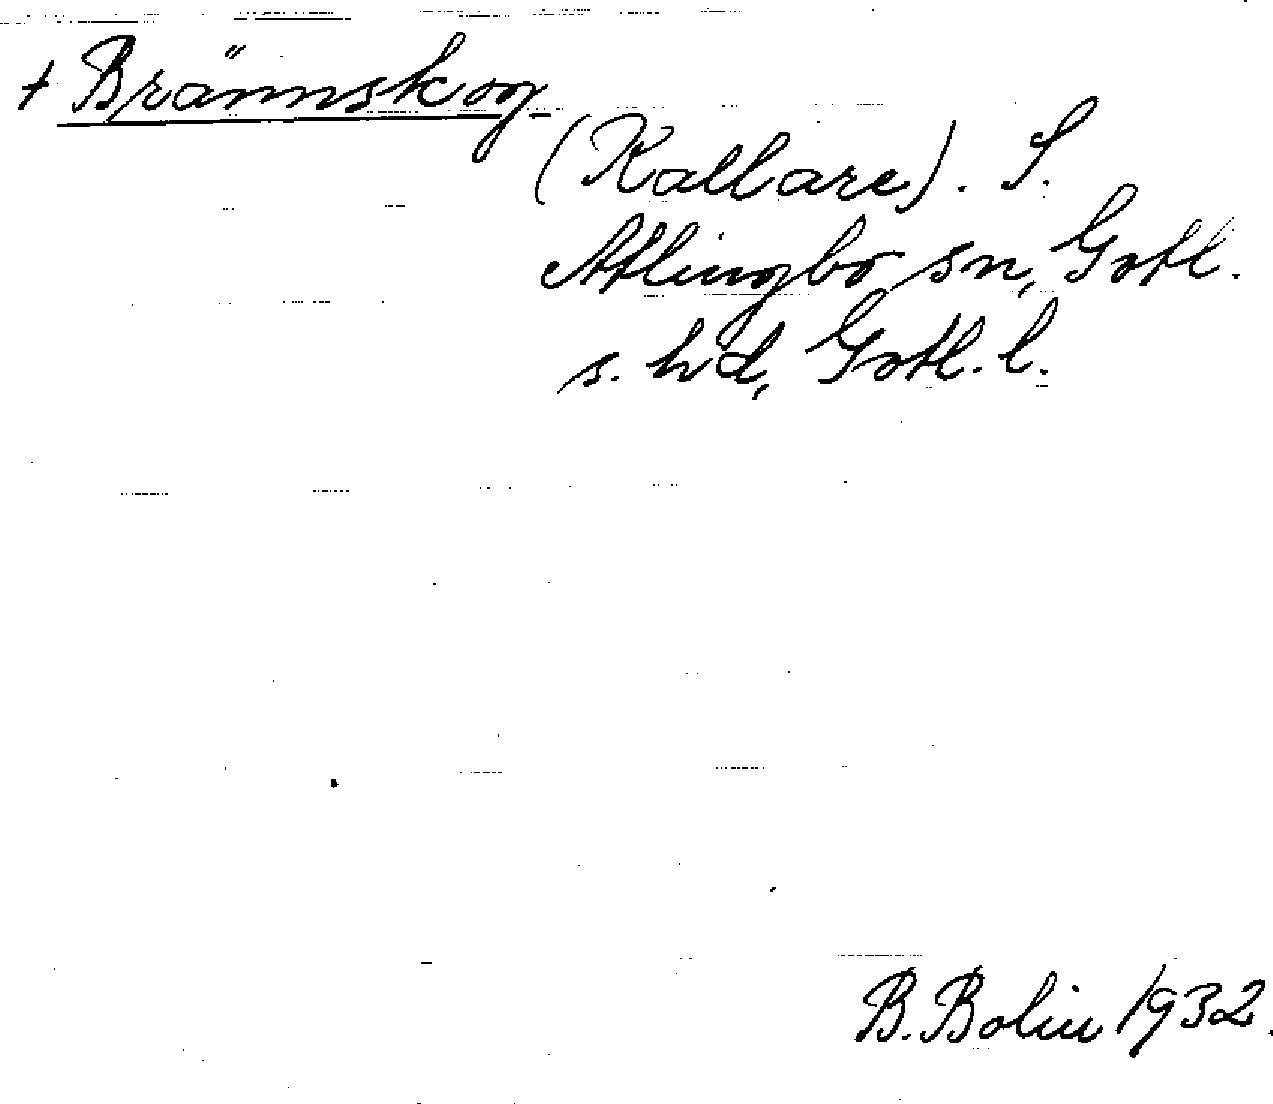 + Brännskog
(Kallare). S.
Atlingbo sn, Gotl.
s. hd, Gotl. l.
B. Bolin 1932.